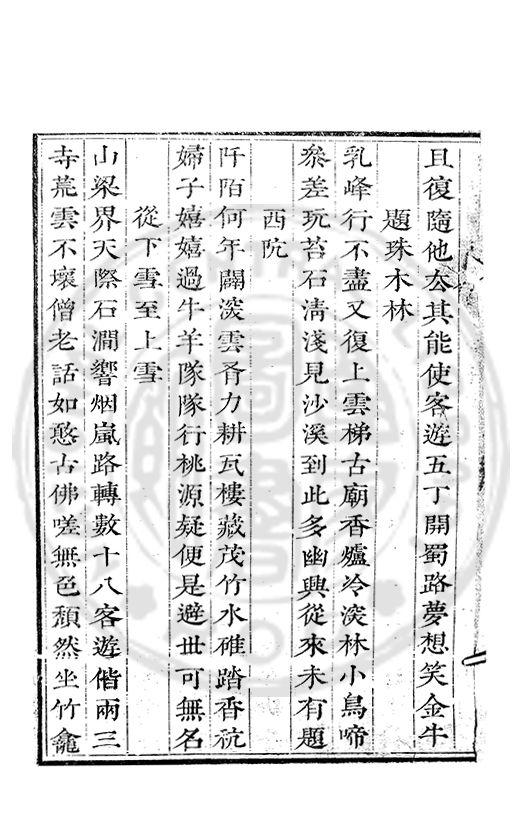 且復隨他去其能使客遊五丁開蜀路夢想笑金牛
題珠木林
乳峰行不盡又復上雲梯古廟香爐冷深林小鳥啼
叅差玩苔石清淺見沙溪到此多幽興從來未有題
西阬
阡陌何年闢深雲肴力耕瓦樓藏茂竹水碓踏香秔
婦子嬉嬉過牛羊隊隊行桃源疑便是避世可無名
從下雪至上雪
山梁界天際石澗響烟嵐路轉數十八客遊偕兩三
寺荒雲不壞僧老話如憨古佛嗟無色頹然坐竹龕